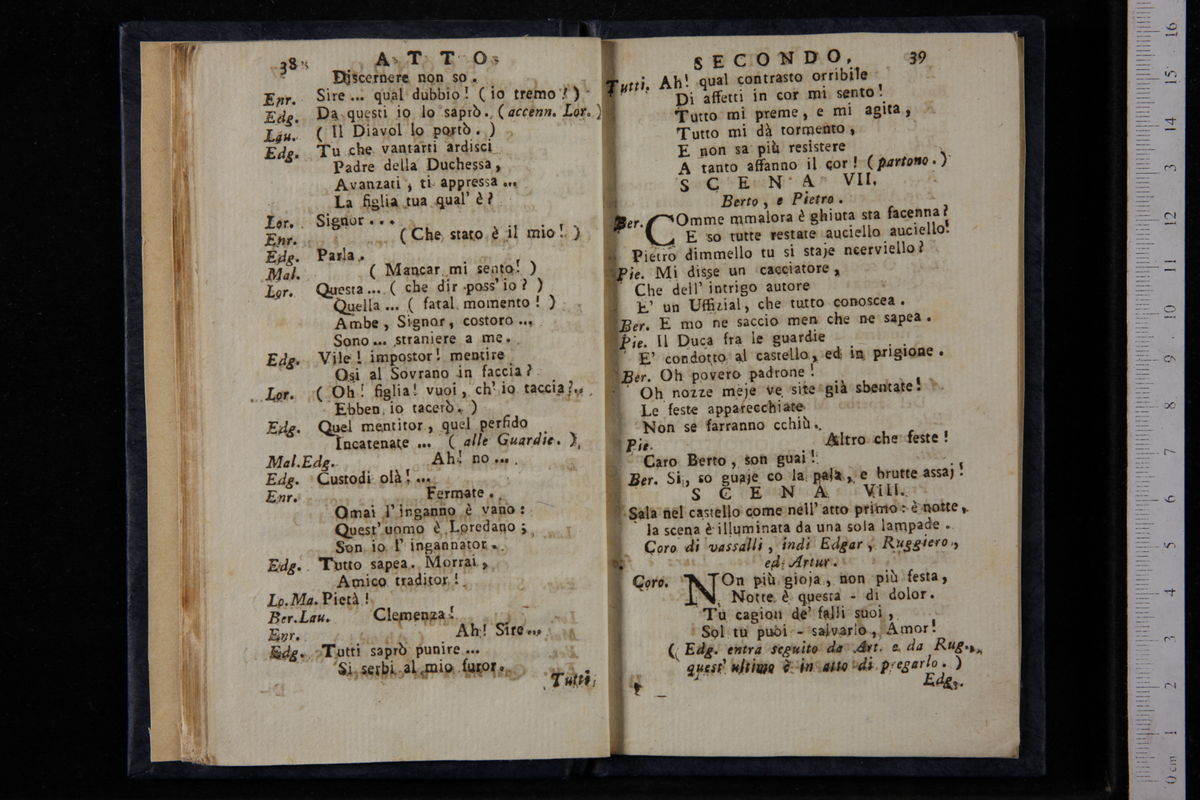 38 ATTO
Discernere non so.
Enr. Sire... qual dubbio! (io tremo!)
Edg. Da questi io lo saprò. (accenn. Lor.)
Lau. (Il Diavol lo portò.)
Edg. Tu che vantarti ardisci
Padre della Duchessa,
Avanzati, ti appressa...
La figlia tua qual' è?
Lor. Signor...
Enr. (Che stato è il mio!)
Edg. Parla.
Mal. (Mancar mi sento!)
Lor. Questa... (che dir poss'io?)
Quella... (fatal momento!)
Ambe, Signor, costoro...
Sono... straniere a me.
Edg. Vile! impostor! mentire
Osi al Sovrano in faccia?
Lor. (Oh! figlia! vuoi, ch'io taccia?..
Ebben io tacerò.)
Edg. Quel mentitor, quel perfido
Incatenate... (alle Guardie.)
Mal.Edg. Ah! no...
Edg. Custodi olà!...
Enr. Fermate.
Omai l'inganno è vano:
Quest'uomo è Loredano;
Son io l'ingannator.
Edg. Tutto sapea. Morrai,
Amico traditor!
Lo.Ma. Pietà!
Ber.Lau. Clemenza!
Enr. Ah! Sire...
Edg. Tutti saprò punire...
Si serbi al mio furor.
Tutti
SECONDO. 39
Tutti. Ah! qual contrasto orribile
Di affetti in cor mi sento!
Tutto mi preme, e mi agita,
Tutto mi dà tormento,
E non sa più resistere
A tanto affanno il cor! (partono.)
SCENA VII.
Berto, e Pietro.
Ber. COmme mmalora è ghiuta sta facenna?
E so tutte restate auciello auciello!
Pietro dimmello tu si staje ncerviello?
Pie. Mi disse un cacciatore,
Che dell' intrigo autore
E' un Uffizial, che tutto conoscea.
Ber. E mo ne saccio men che ne sapea.
Pie. Il Duca fra le guardie
E' condotto al castello, ed in prigione.
Ber. Oh povero padrone!
Oh nozze meje ve site già sbentate!
Le feste apparecchiate
Non se farranno cchiù.
Pie. Altro che feste!
Caro Berto, son guai!
Ber. Si, so guaje co la pala, e brutte assaj!
SCENA VIII.
Sala nel castello come nell' atto primo: è notte,
la scena è illuminata da una sola lampade.
Coro di vassalli, indi Edgar, Ruggiero,
ed Artur.
Coro. NOn più gioja, non più festa,
Notte è questa - di dolor.
Tu cagion de' falli suoi,
Sol tu puoi - salvarlo, Amor!
(Edg. entra seguito da Art. e da Rug.,
quest' ultimo è in atto di pregarlo.)
Edg.
0 cm 1 2 3 4 5 6 7 8 9 10 11 12 13 14 15 16